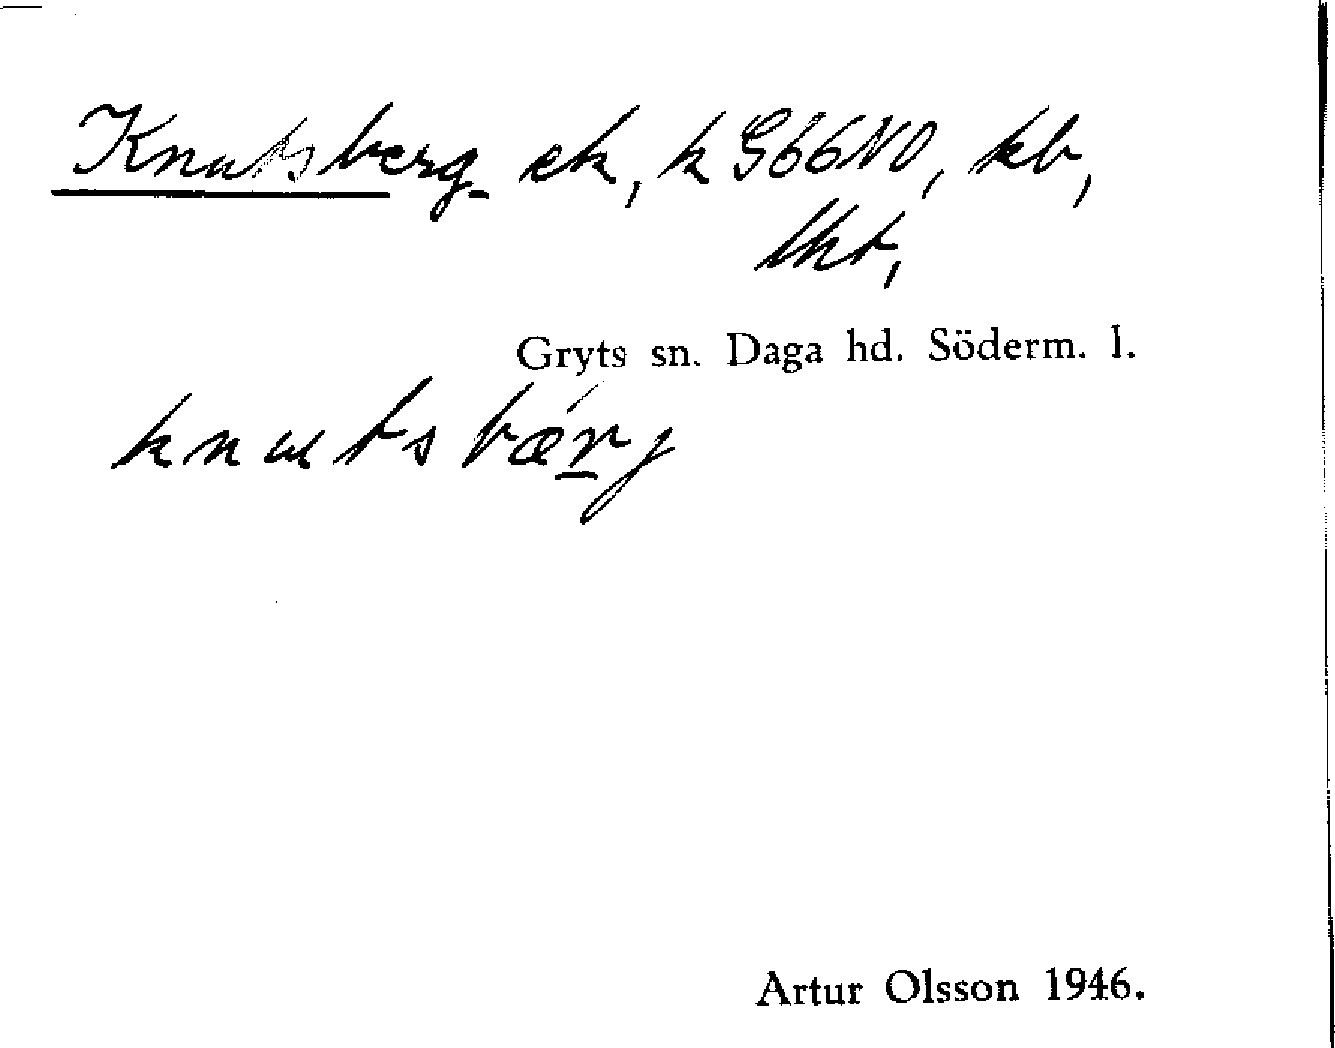 Knutsberg ek, k G66NO, kb,
lht,
Gryts sn. Daga hd. Söderm. l.
knutsbærj
Artur Olsson 1946.